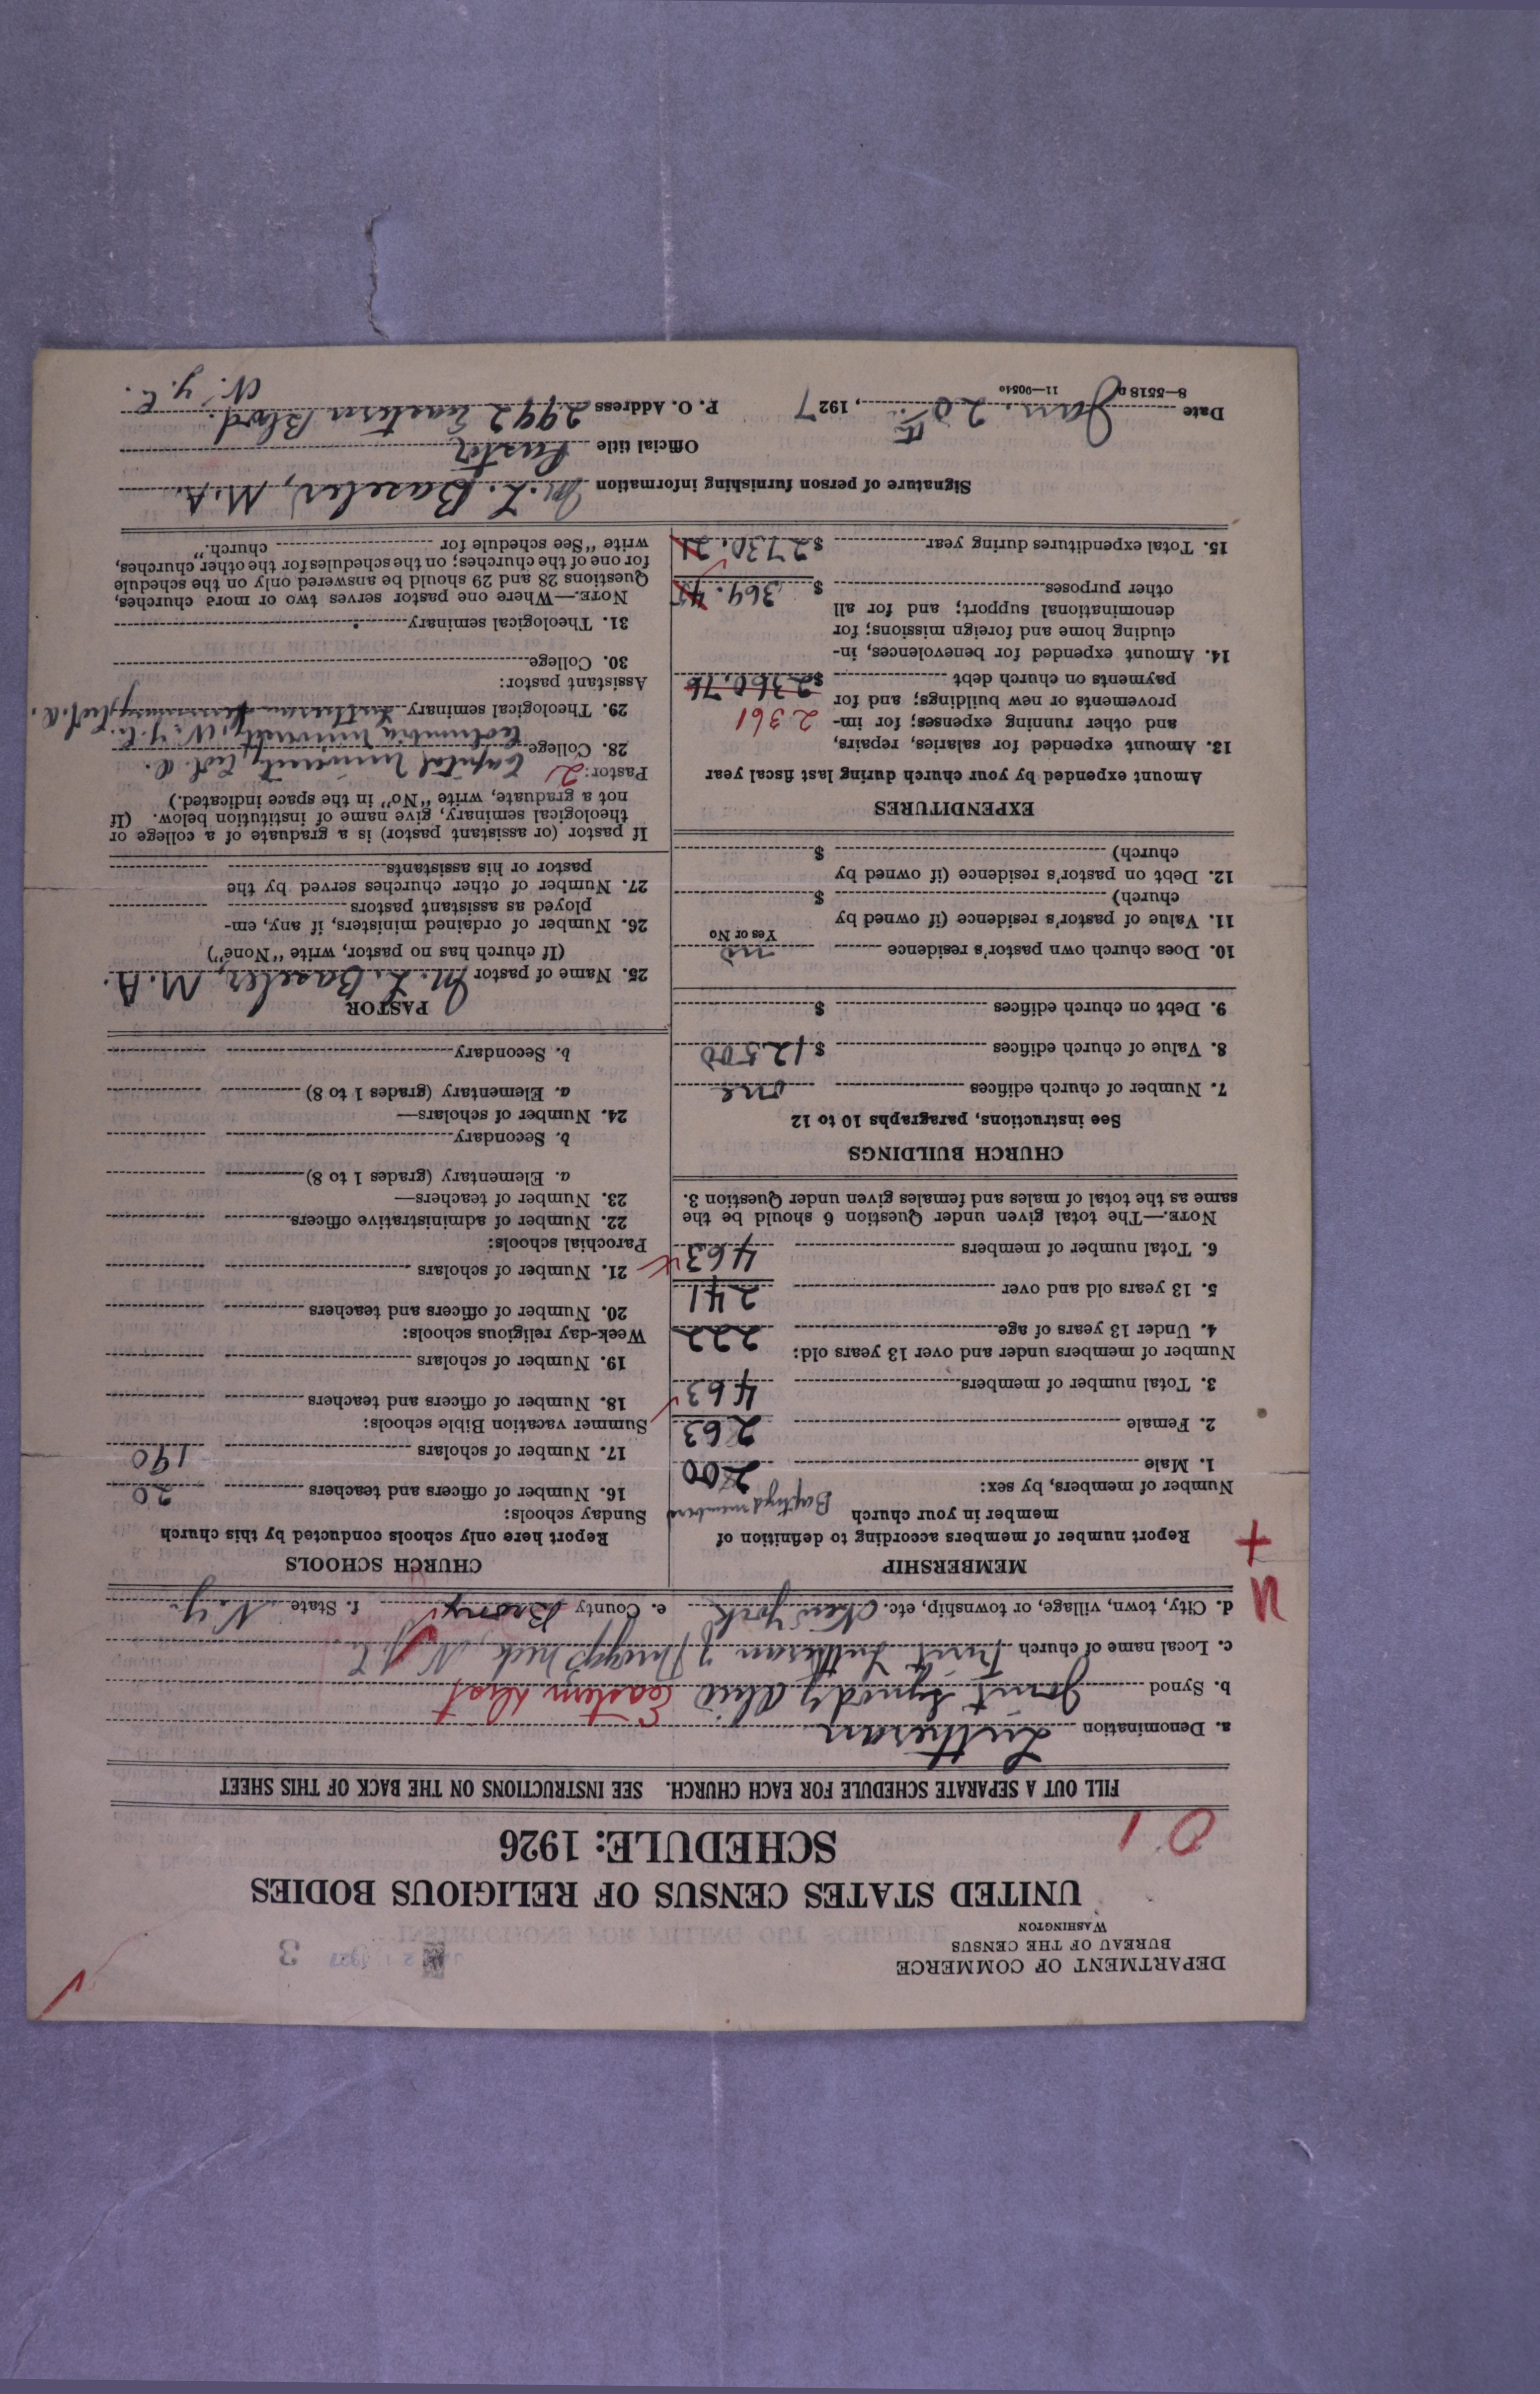 DEPARTMENT OF COMMERCE
BUREAU OF THE CENSUS
WASHINGTON
3
UNITED STATES CENSUS OF RELIGIOUS BODIES
SCHEDULE: 1926
01
FILL OUT A SEPARATE SCHEDULE FOR EACH CHURCH. SEE INSTRUCTIONS ON THE BACK OF THIS SHEET
a. Denomination Lutheran
b. Synod Joint Synod of Ohio Eastern Dist
c. Local name of church First Lutheran of Throggs Neck, N.Y.C.
d. City, town, village, or township, etc. New York e. County Bronx f. State N.Y.
MEMBERSHIP
Report number of members according to definition of
member in your church Baptized members
Number of members, by sex:
1. Male 200
2. Female 263
3. Total number of members 463
Number of members under and over 13 years old:
4. Under 13 years of age 222
5. 13 years old and over 241
6. Total number of members 463
NOTE.—The total given under Question 6 should be the
same as the total of males and females given under Question 3.
CHURCH BUILDINGS
See instructions, paragraphs 10 to 12
7. Number of church edifices one
8. Value of church edifices $12500
9. Debt on church edifices $
10. Does church own pastor's residence no
Yes or No
11. Value of pastor's residence (if owned by
church) $
12. Debt on pastor's residence (if owned by
church) $
EXPENDITURES
Amount expended by your church during last fiscal year
13. Amount expended for salaries, repairs,
and other running expenses; for im- 2361
provements or new buildings; and for
payments on church debt $2360.76
14. Amount expended for benevolences, in-
cluding home and foreign missions; for
denominational support; and for all
other purposes $ 369.45
15. Total expenditures during year $2730.21
CHURCH SCHOOLS
Report here only schools conducted by this church
Sunday schools:
16. Number of officers and teachers 20
17. Number of scholars 190
Summer vacation Bible schools:
18. Number of officers and teachers
19. Number of scholars
Week-day religious schools:
20. Number of officers and teachers
21. Number of scholars
Parochial schools:
22. Number of administrative officers
23. Number of teachers—
a. Elementary (grades 1 to 8)
b. Secondary
24. Number of scholars—
a. Elementary (grades 1 to 8)
b. Secondary
PASTOR
25. Name of pastor M. L. Baseler, M.A.
(If church has no pastor, write "None")
26. Number of ordained ministers, if any, em-
ployed as assistant pastors
27. Number of other churches served by the
pastor or his assistants
If pastor (or assistant pastor) is a graduate of a college or
theological seminary, give name of institution below. (If
not a graduate, write "No" in the space indicated.)
Pastor: 2 Capital University, Col. O.
28. College Columbia University, N.Y.C.
29. Theological seminary Lutheran Seminary, Col. O.
Assistant pastor:
30. College
31. Theological seminary
NOTE.—Where one pastor serves two or more churches,
Questions 28 and 29 should be answered only on the schedule
for one of the churches; on the schedules for the other churches,
write "See schedule for church."
Signature of person furnishing information M. L. Baseler, M.A.
Official title Pastor
Date Jan. 20th, 1927 P. O. Address 2992 Eastern Blvrd.
N.Y.C.
8—5518 a 11—9051o